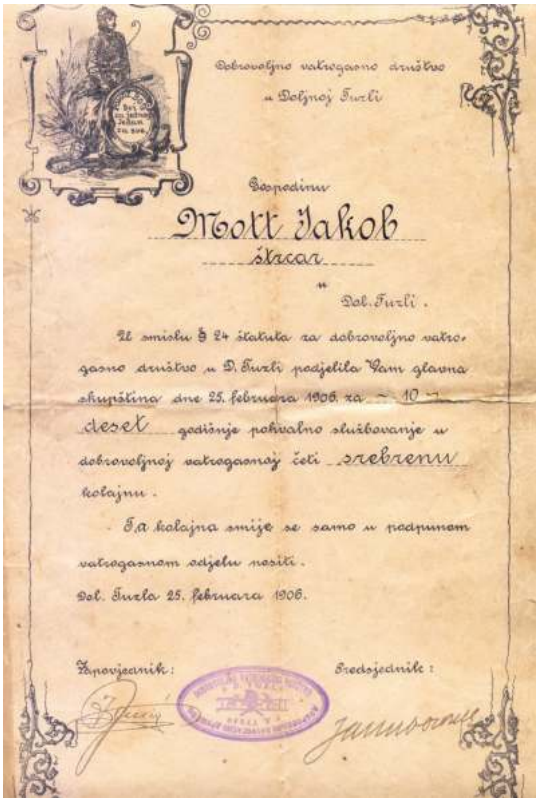 Svi
za jednog
Jedan
za sve.
Dobrovoljno vatrogasno društvo
u Doljnoj Tuzli
Gospodinu
Mott Jakob
štrcar
u
Dol. Tuzli.
U smislu § 24 štatuta za dobrovoljno vatro-
gasno društvo u D. Tuzli podjelila Vam glavna
skupština dne 25. februara 1906. za ~ 10 ~
deset godišnje pohvalno službovanje u
dobrovoljnoj vatrogasnoj četi srebrenu
kolajnu.
Ta kolajna smije se samo u podpunom
vatrogasnom odjelu nositi.
Dol. Tuzla 25. februara 1906.
Zapovjednik:
Predsjednik: